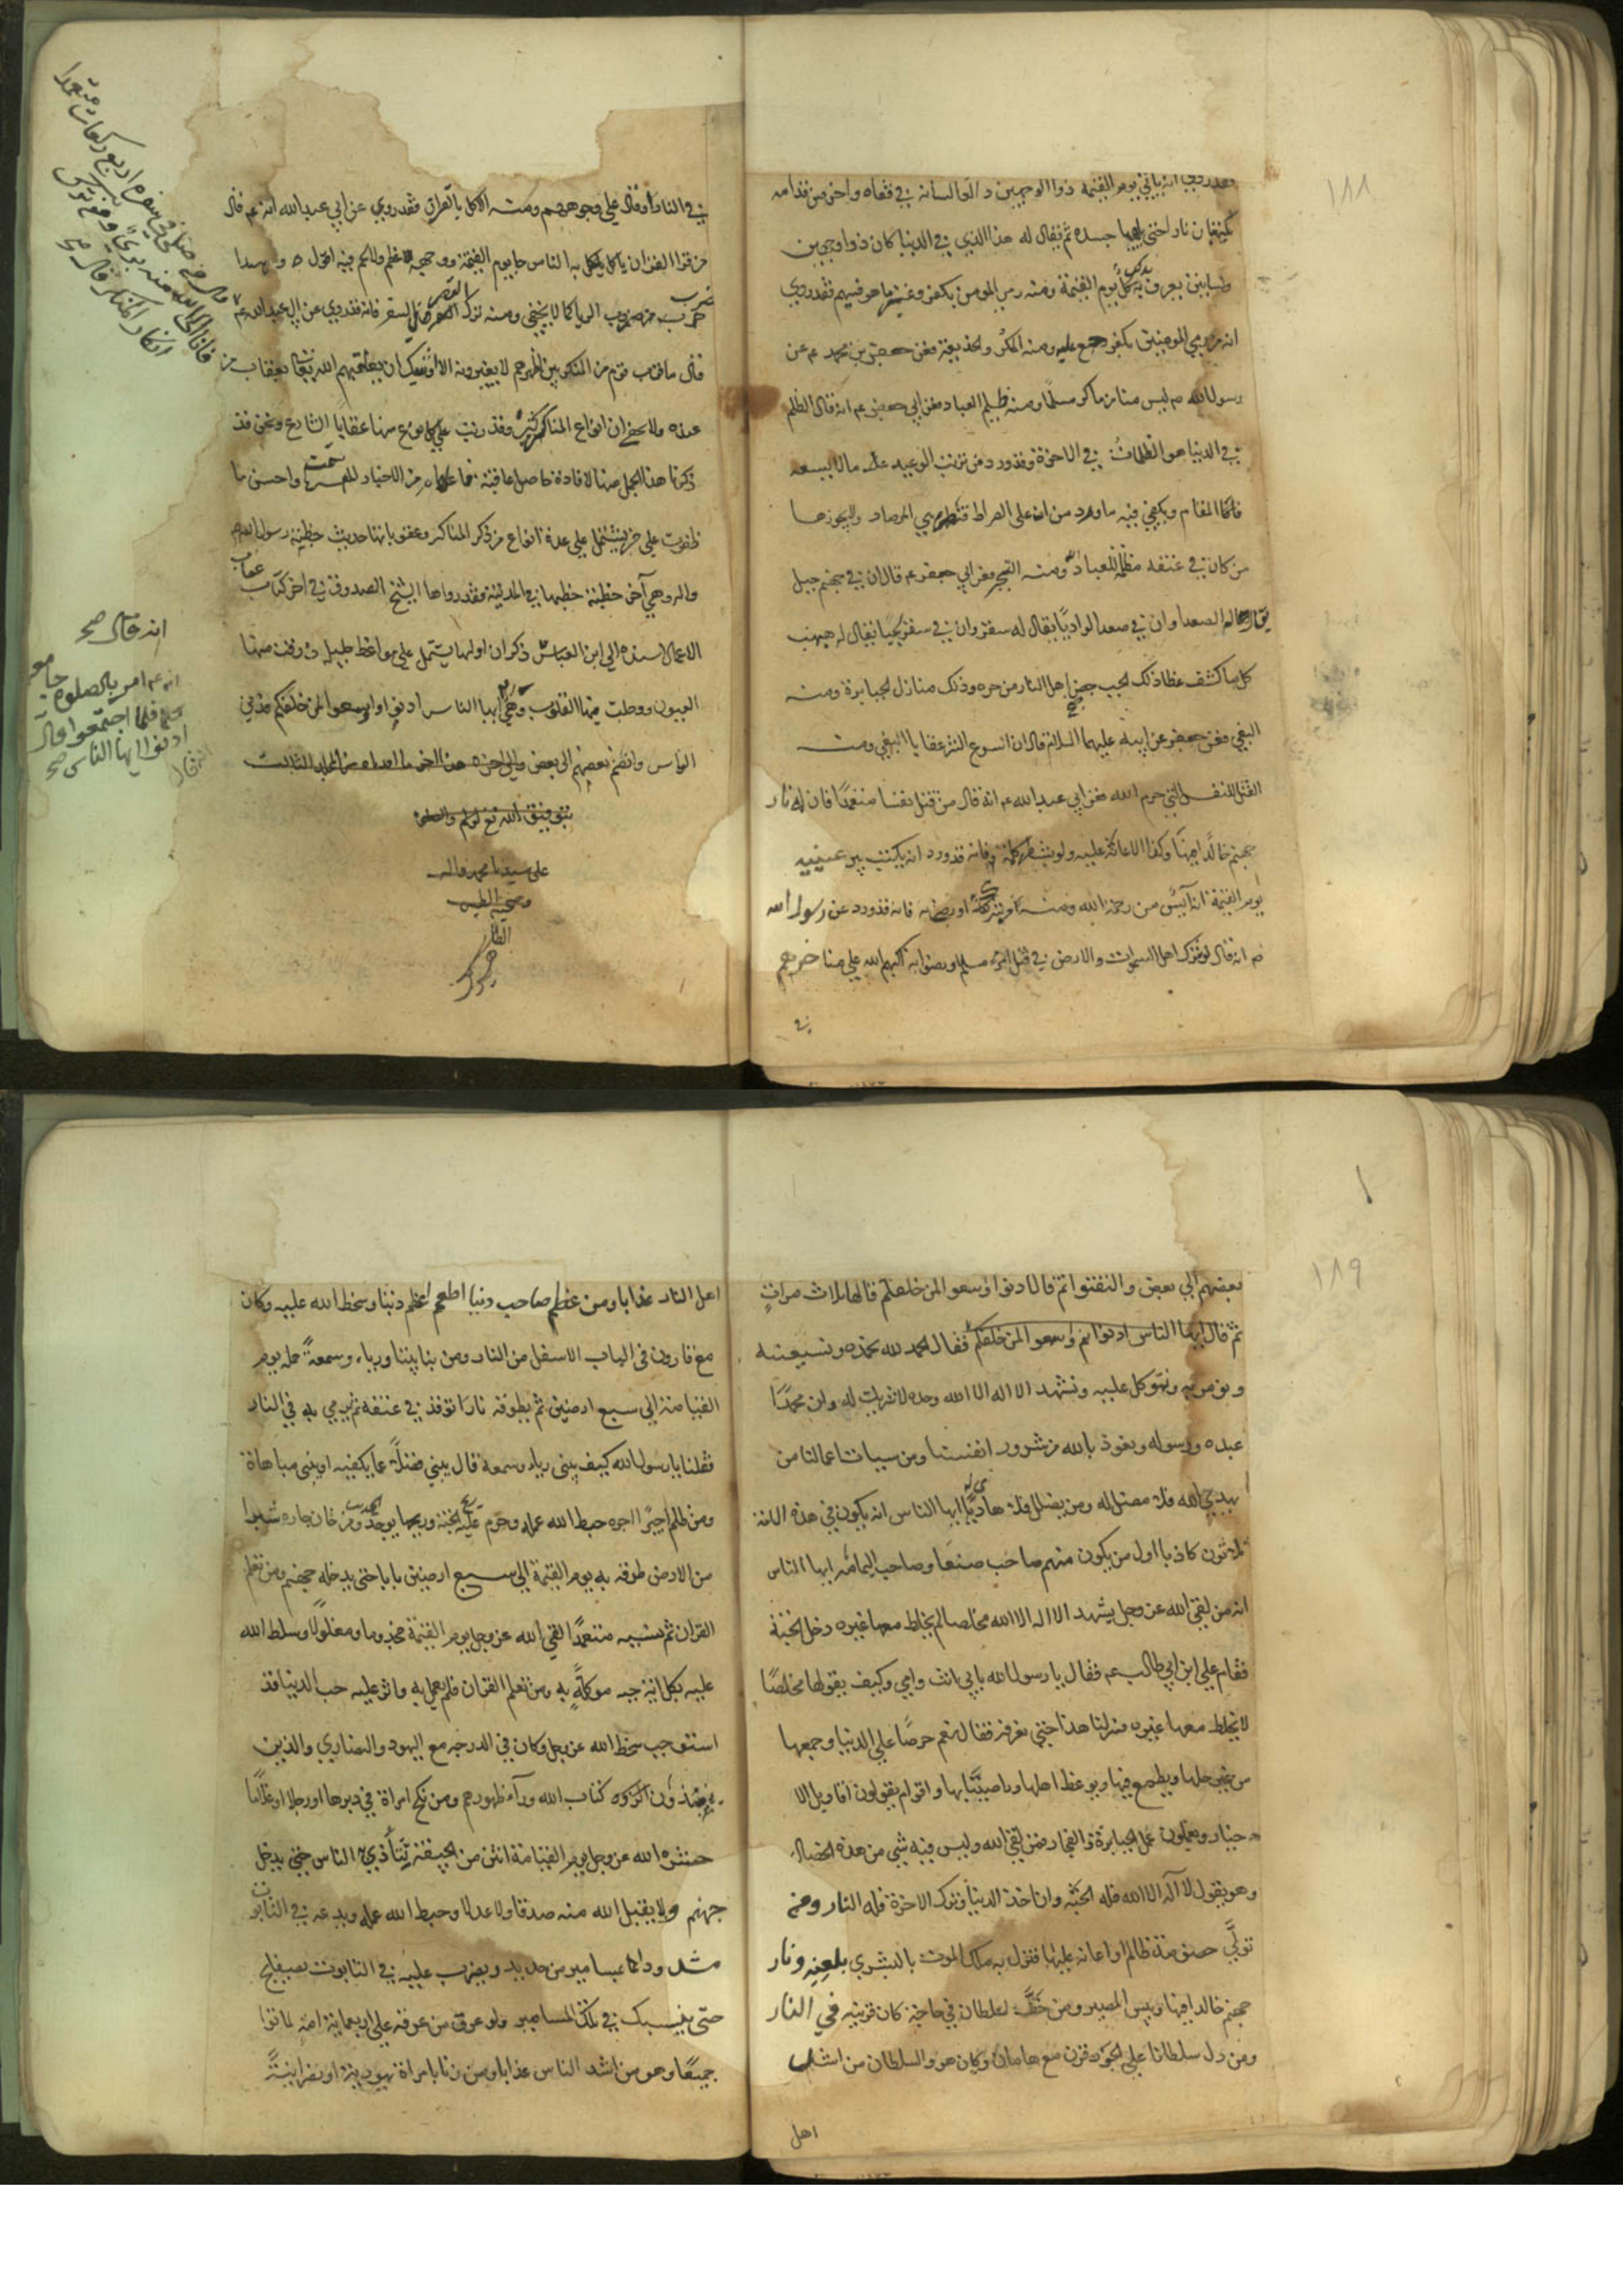 ١٨٨
فقد روي انه ياتي يوم القيمة ذوا الوجهين دالعا لسانه في قفاه واخر من قدامه
يلتهبان نارا حتى يلهبا جسده ثم يقال له هذا الذي في الدنيا كان ذوا وجهين
ولسانين يعرف بذلك يوم القيمة ومنه رمي المومن بكفر وغيره ما هو فيهم فقد روي
انه من رمي المومنين بكفر رجع عليه ومنه المكر والخديعة فعن جعفر بن محمد عم عن
رسول الله صم ليس منا من ماكر مسلما ومنه ظلم العباد فعن ابي جعفر عم انه قال الظلم
في الدنيا هو الظلمات في الاخرة وقد ورد من ترتب الوعيد عليه ما لا يسعه
هذا المقام ويكفي فيه ما ورد من ان على الصراط قنطرة هي المرصاد ولا يجوزها
من كان في عنقه مظلمة للعباد ومنه التجبر فعن ابي جعفر عم قال ان في جهنم جبل
يقال له الصعدا وان في صعدا لواديا يقال له سقر وان في سقر لجبا يقال له هبهب
كل ما كشف غطا ذلك الجب ضج اهل النار من حره وذلك منازل الجبابرة ومنه
البغي فعن جعفر عن ابيه عليهما السلام قال ان اسرع الشر عقابا البغي ومنه
القتل للنفس التي حرم الله فعن ابي عبدالله عم انه قال من قتل نفسا متعمدا فان له نار
جهنم خالدا فيها وكذا الاعانة عليه ولو بشطر كلمة فانه قد ورد انه يكتب بين عينيه
يوم القيمة انه آيس من رحمة الله ومنه او رضي به فانه قد ورد عن رسول الله
صم انه قال لو شرك اهل السموات والارض في قتل امرء مسلم ورضوا به اكبهم الله على مناخرهم
في
في النار او قال على وجوههم ومنه الاكل بالقران فقد روي عن ابي عبدالله انه عم قال
من قرا القران ياكل به الناس جا يوم القيمة ووجهه عظم ولا لحم فيه
ضرب من ضروب الريا كما لا يخفى ومنه ترك القصر في السفر فانه قد روي عن ابي عبدالله عم
قال ما قرب قوم من المنكر بين اظهرهم لا يغيرونه الا اوشك ان يعمهم الله تعالى بعقاب من
عنده ولا يخفى ان انواع المناكير كثيرة وقد رتب على كل نوع منها عقابا الشارع ونحن قد
ذكرنا هذا الجمل منها لافادة من الاخبار واحسن ما
ظفرت على خبر يشتمل على عدة انواع من ذكر المناكر وعقوباتها حديث خطبة رسول الله صم
واله وهي آخر خطبة خطبها في المدينة وقد رواها الشيخ الصدوق في اخر كتاب عقاب
الاعمال اسنده الى ابن العباس ذكر ان اولها يشتمل على مواعظ جليلة ذرفت منها
العيون ووجلت منها القلوب وهي ايها الناس ادنوا واوسعوا لمن خلفكم فدنى
الناس وانضم بعضهم الى بعض والى اخره هذا اخر ما اوردناه من المجلد الثالث
بتوفيق الله تع
على سيدنا محمد واله
وصحبه الطيبين
الطاهرين
قال من صلى في سفره اربع ركعات متعمدا
فانا الى الله منه بريء
انكار المنكر قال صح
انه قال صح
انه عم امر بالصلوة جامعة
فلما اجتمعوا قال
ادنوا ايها الناس صح
١٨٩
بعضهم الى بعض والتفتوا ثم قال ادنوا واوسعوا لمن خلفكم قالها ثلاث مرات
ثم قال ايها الناس ادنوا واوسعوا لمن خلفكم فقال الحمد لله نحمده ونستعينه
ونومن به ونتوكل عليه ونشهد الا اله الا الله وحده لا شريك له وان محمدا
عبده ورسوله ونعوذ بالله من شرور انفسنا ومن سيات اعمالنا من
يهدي الله فلا مضل له ومن يضلل فلا هادي له ايها الناس انه يكون في هذه الامة
ثلاثون كاذبا اول من يكون منهم صاحب صنعا وصاحب اليمامه ايها الناس
انه من لقى الله عز وجل يشهد الا اله الا الله مخلصا لم يخلط معها غيره دخل الجنة
فقام علي ابن ابي طالب عم فقال يا رسول الله بابي انت وامي وكيف يقولها مخلصا
لا يخلط معها غيره فسر لنا هذا حتى نعرفه فقال نعم حرصا على الدنيا وجمعها
من غير حلها ويطمع فيها واقوام يقولون اقاويل الا
خيار ويعملون عمل الجبابرة والفجار فمن لقى الله وليس فيه شي من هذه الخصال
وهو يقول لا اله الا الله فله الجنة وان اخذ الدنيا وترك الاخرة فله النار ومن
تولى خصومة ظالم او اعانه عليها نزل به ملك الموت بالبشرى بلعنه ونار
جهنم خالدا فيها وبيس المصير ومن خف لسلطان في حاجة كان قرينه في النار
ومن دل سلطانا على الجور قرن مع هامان وكان هو والسلطان من اشد
اهل
اهل النار عذابا ومن عظم صاحب دنيا سخط الله عليه وكان
مع قارون في الباب الاسفل من النار ومن بنا بيتا رياء وسمعة حمله يوم
القيامة الى سبع ارضين ثم يطوقه نارا توقد في عنقه ثم يرمي به في النار
فقلنا يا رسول الله كيف يبنى رياء وسمعة قال يبني فضلا عما يكفيه او يبني مباهاة
ومن ظلم اجيرا اجره حبط الله عمله وحرم عليه الجنة وريحها يوجد ومن خان جاره شبرا
من الارض طوقه به يوم القيمة الى سبع ارضين نارا حتى يدخله جهنم ومن تعلم
القران ثم نسيه متعمدا لقي الله عز وجل يوم القيمة مجذوما ومغلولا وسلط الله
عليه بكل اية حية موكلة به ومن تعلم القران فلم يعمل به واثر عليه حب الدنيا قد
استوجب سخط الله عز وجل وكان في الدرجه مع اليهود والنصارى والذين
ينبذون كتاب الله ورآء ظهورهم ومن نكح امراة في دبرها او رجلا او غلاما
حشره الله عز وجل يوم القيامة انتن من الجيفة يتأذى به الناس حتى يدخل
جهنم ولا يقبل الله منه صدقا ولا عدلا وحبط الله عمله ويدعه في التابوت
مشدودا بمسامير من حديد ويضرب عليه في التابوت بصفايح
حتى يشبك في تلك المسامير ولو عرق من عرقه على اربعماية امة لماتوا
جميعا وهو من اشد الناس عذابا ومن زنا بامراة يهودية او نصرانية